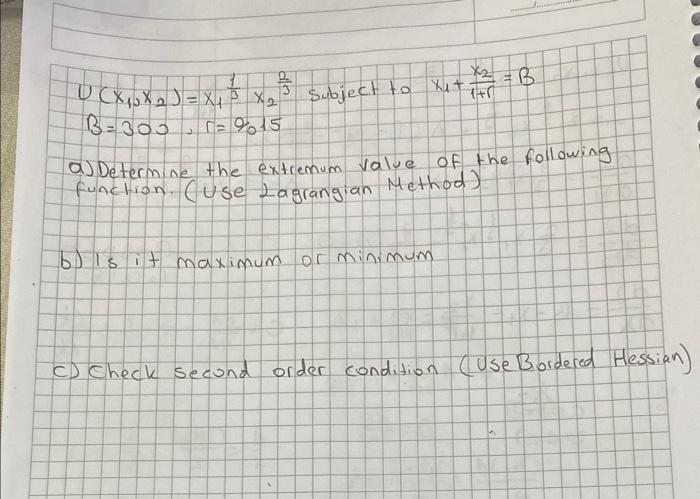 U(x₁,x₂) = x₁^(1/3) x₂^(2/3) subject to x₁ + x₂/(1+r) = B
B = 300, r = %15
a) Determine the extremum value of the following
function. (Use Lagrangian Method)
b) Is it maximum or minimum
c) Check second order condition (Use Bordered Hessian)